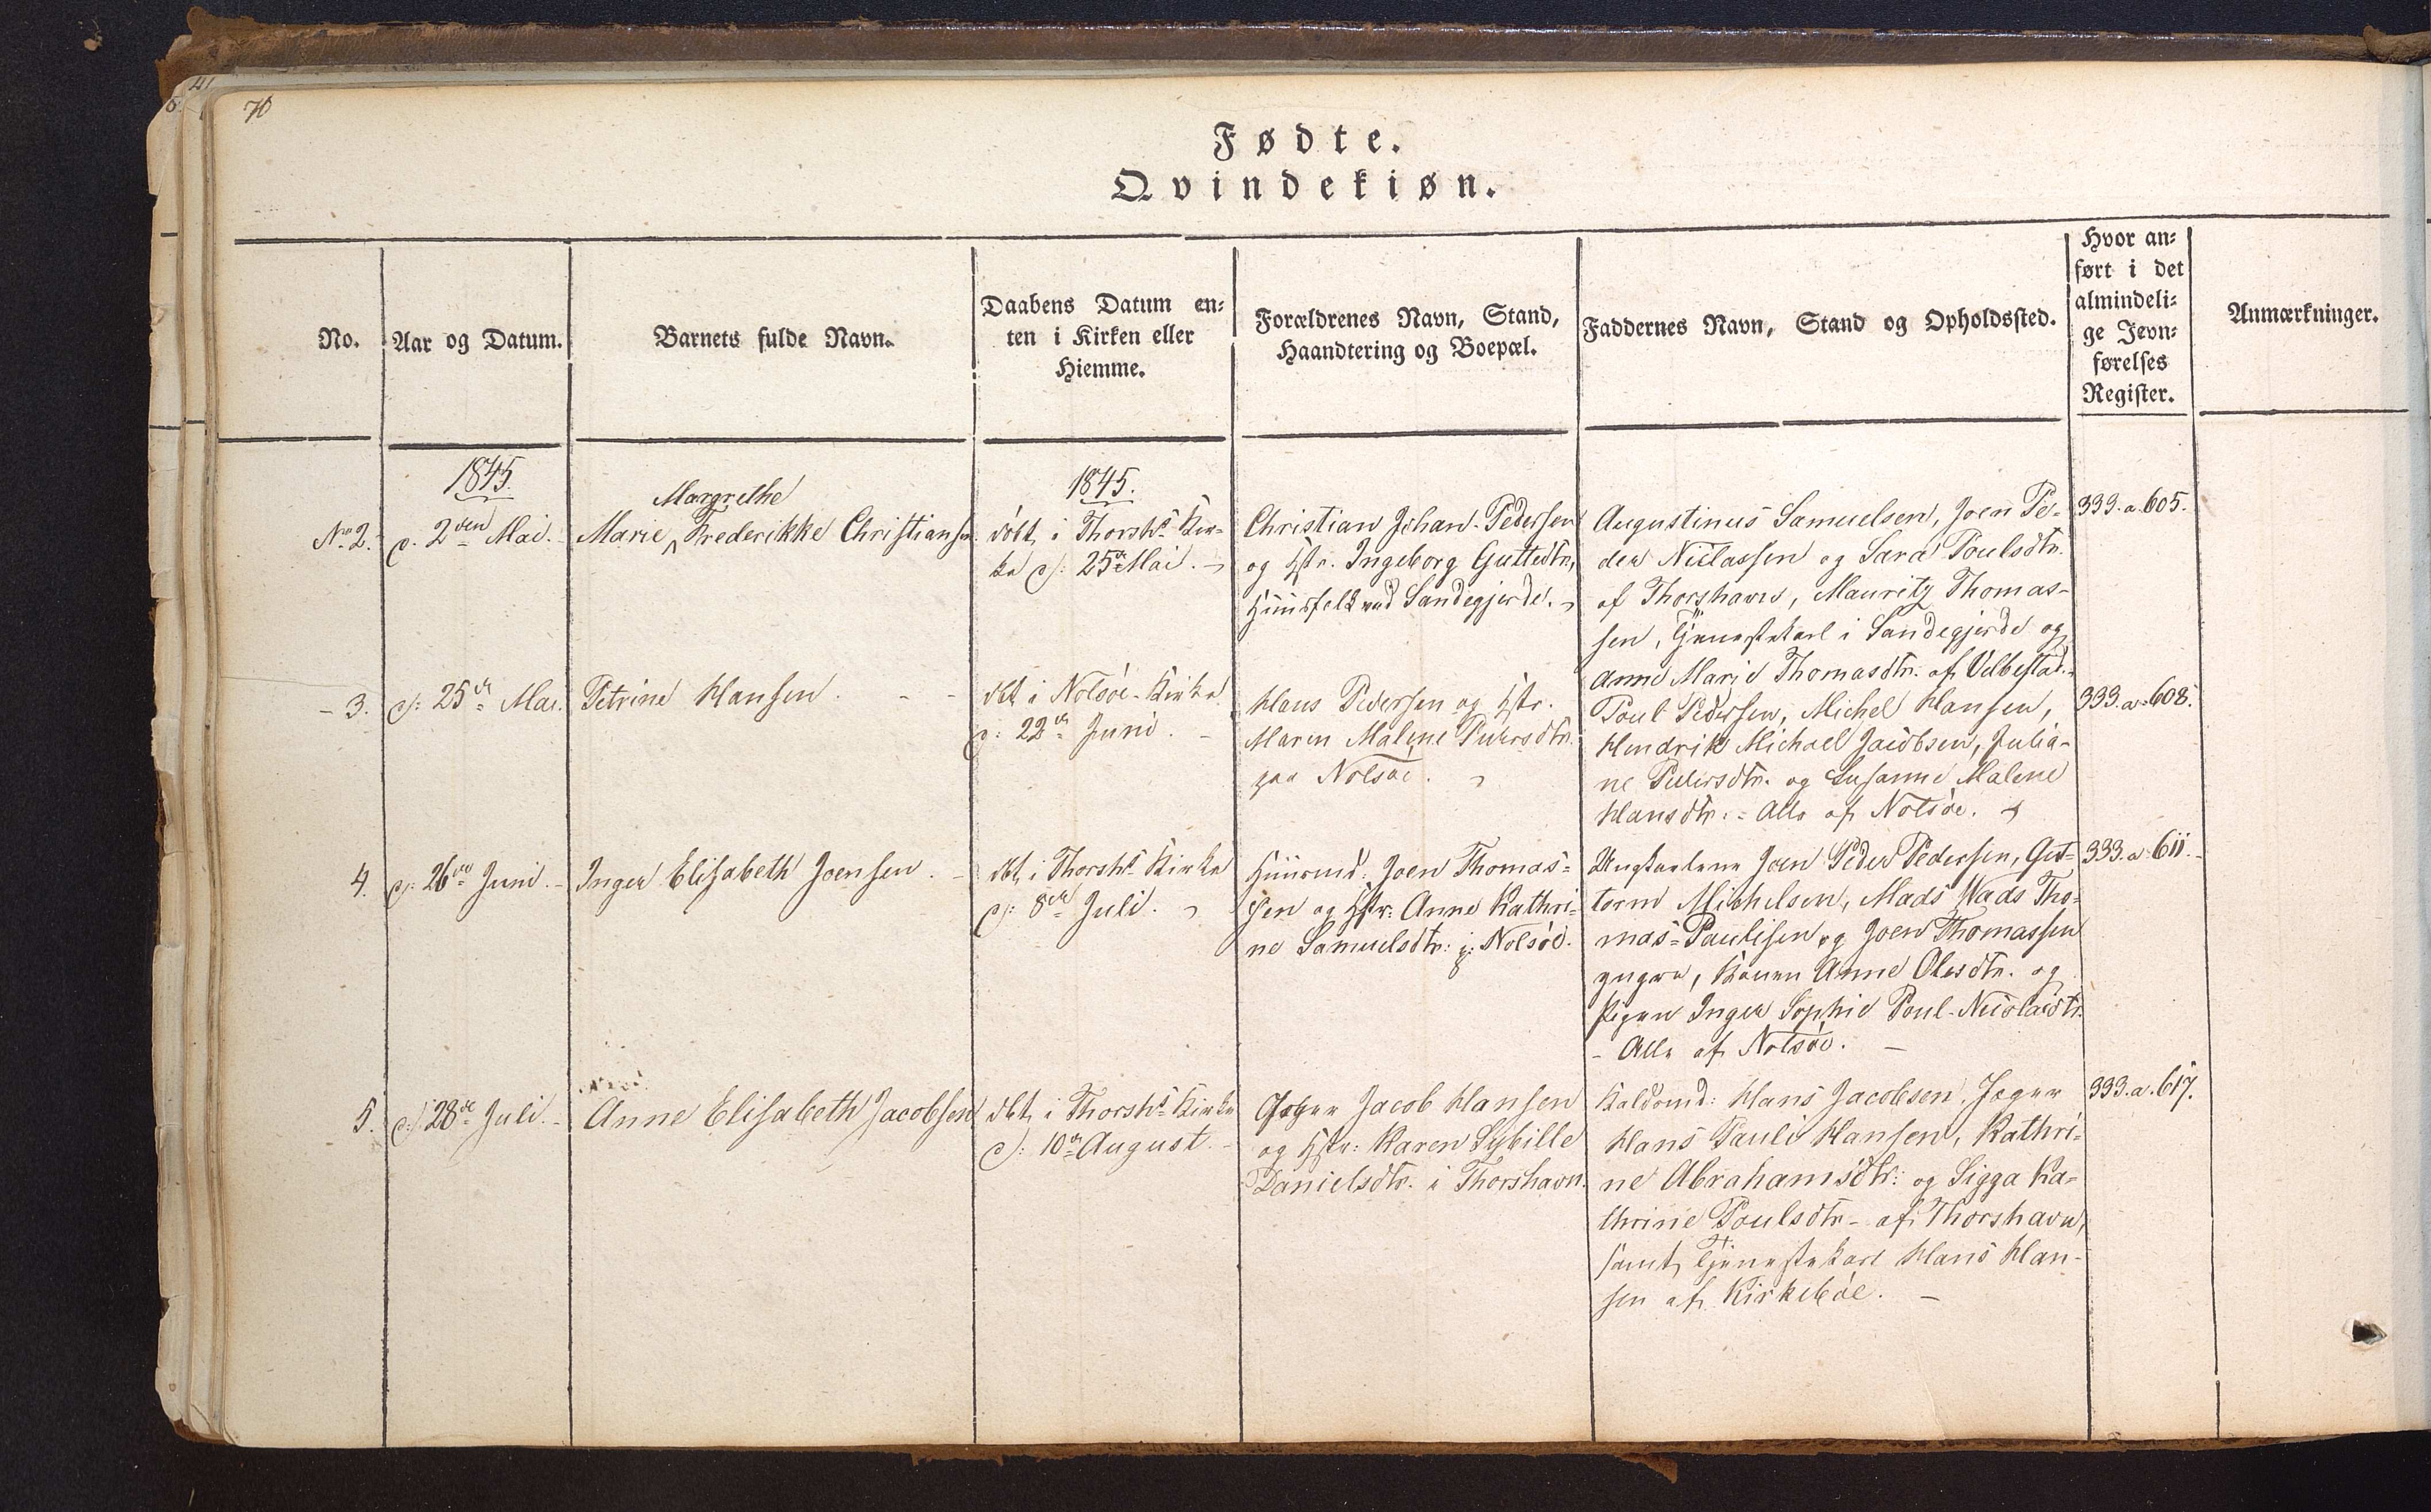 70
Fødte.
Qvindekiøn.
No.
Aar og Datum.
Barnets fulde Navn.
Daabens Datum en-
ten i Kirken eller
Hiemme.
Forældrenes Navn, Stand,
Haandtering og Boepæl.
Faddernes Navn, Stand og Opholdssted.
Hvor an-
ført i det
almindeli-
ge Jevn-
førelses
Register.
Anmærkninger.
1845.
No 2.
d. 2den Mai.
Margrethe
Marie Frederikke Christiansen
1845.
døbt i Thorsh. Kir-
ke d: 25de Mai.
Christian Johan Pedersen
og Hstr. Ingeborg Guttedtr,
Huusfolk ved Sandegjerde.
Augustinus Samuelsen, Joen Pe-
der Niclassen og Sara Poulsdtr.
af Thorshavn, Mauritz Thomas-
sen, Tjenestekarl i Sandegjerde og
Anne Marie Thomasdtr. af Velbestad.
333. a. 605.
- 3.
d: 25de Mai.
Petrine Hansen.
dbt i Nolsøe Kirke
d: 22de Juni.
Hans Pedersen og Hstr.
Maren Malene Peersdtr.
paa Nolsøe.
Poul Pedersen, Michel Hansen,
Hendrik Michael Jacobsen, Julia-
ne Peersdtr. og Susanne Malene
Hansdtr. - Alle af Nolsøe.
333. a. 608.
4.
d: 26de Juni.
Inger Elisabeth Joensen.
dbt i Thorsh. Kirke
d: 8de Juli.
Huusmd: Joen Thomas-
sen og Hstr: Anne Kathri-
ne Samuelsdtr: p: Nolsøe.
Ungkarlene Joen Peder Pedersen, Gut-
torm Michelsen, Mads Wads Tho-
mas-Paulisen og Joen Thomassen
yngre, Konen Anne Olesdtr. og
Pigen Inger Sophie Poul-Nicolaidtr.
- Alle af Nolsøe.
333. a. 611.
5.
d: 28de Juli.
Anne Elisabeth Jacobsen
dbt i Thorsh. Kirke
d: 10de August.
Jacob Hansen
og Hstr: Karen Sybille
Danielsdtr. i Thorshavn.
Kaldsmd: Hans Jacobsen, Jæger
Hans Pauli Hansen, Kathri-
ne Abrahamsdtr: og Sigga Ka-
thrine Poulsdtr - af Thorshavn,
samt Tjenestekarl Hans Han-
sen af Kirkebøe.
333. a. 617.